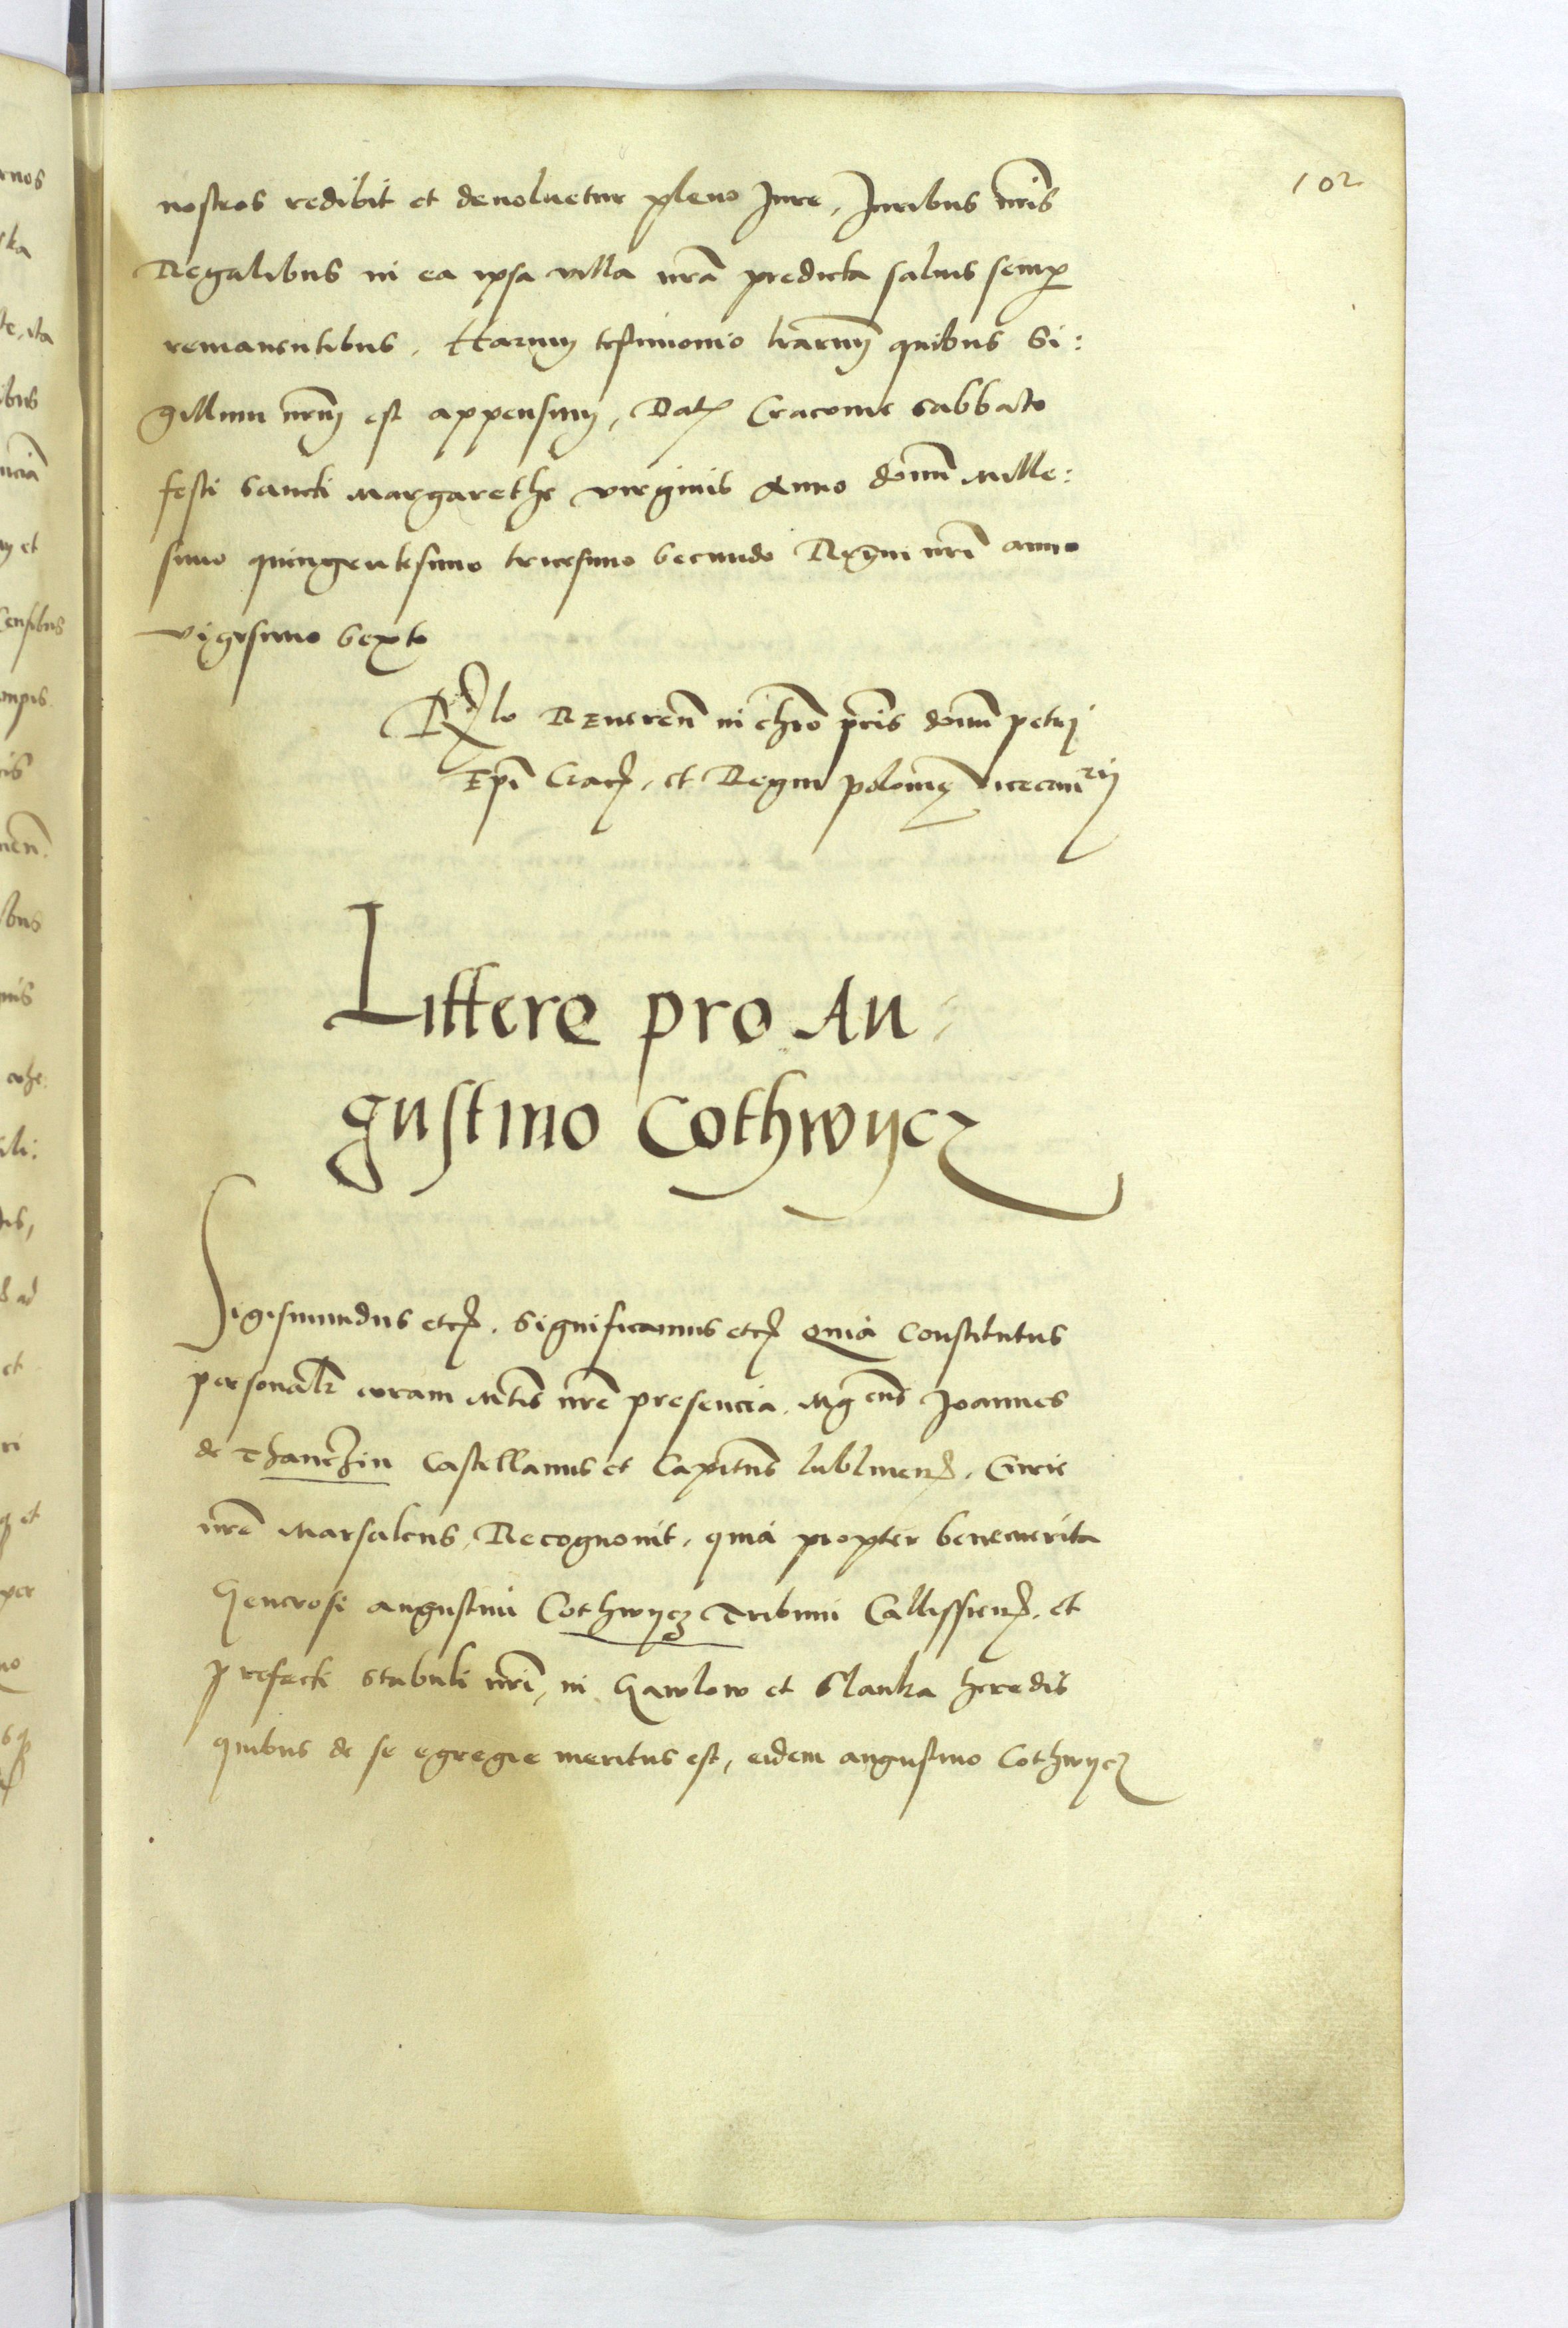 102
nostros redibit et devoluetur pleno Jure, Juribus nr̃is
Regalibus in ea ipsa villa nrã predicta saluis semp
remanentibus. Harum testimonio l̃rarum quibus Si:
gillum nrm̃ est appensum, Dat Cracovie Sabbato
festi Sancti Margarethe virginis Anno domĩ Mille:
simo quingentesimo tricesimo Secundo Regni nrĩ anno
vigesimo Sexto
Rlo Reveren̄ in chr̃o p̃ris domĩ petri
Ep̃i Crac. et Regni polonie vicecancrij
Littere pro Au-
gustino Cothwycz
Sigismundus etc. Significamus etc Quia Constitutus
personalr̃ coram Mt̃is nrẽ presencia. Mgcus Joannes
de Thanczin Castellanus et Capitn̄s lublinen. Curie
nrẽ Marsalcus, Recognovit, quia propter benemerita
Generosi augustini Cothwycz Tribuni Callissien. et
prefecti stabuli nrĩ, in Gawlow et Slanka heredis
quibus de se egregie meritus est, eidem augustino Cothwycz